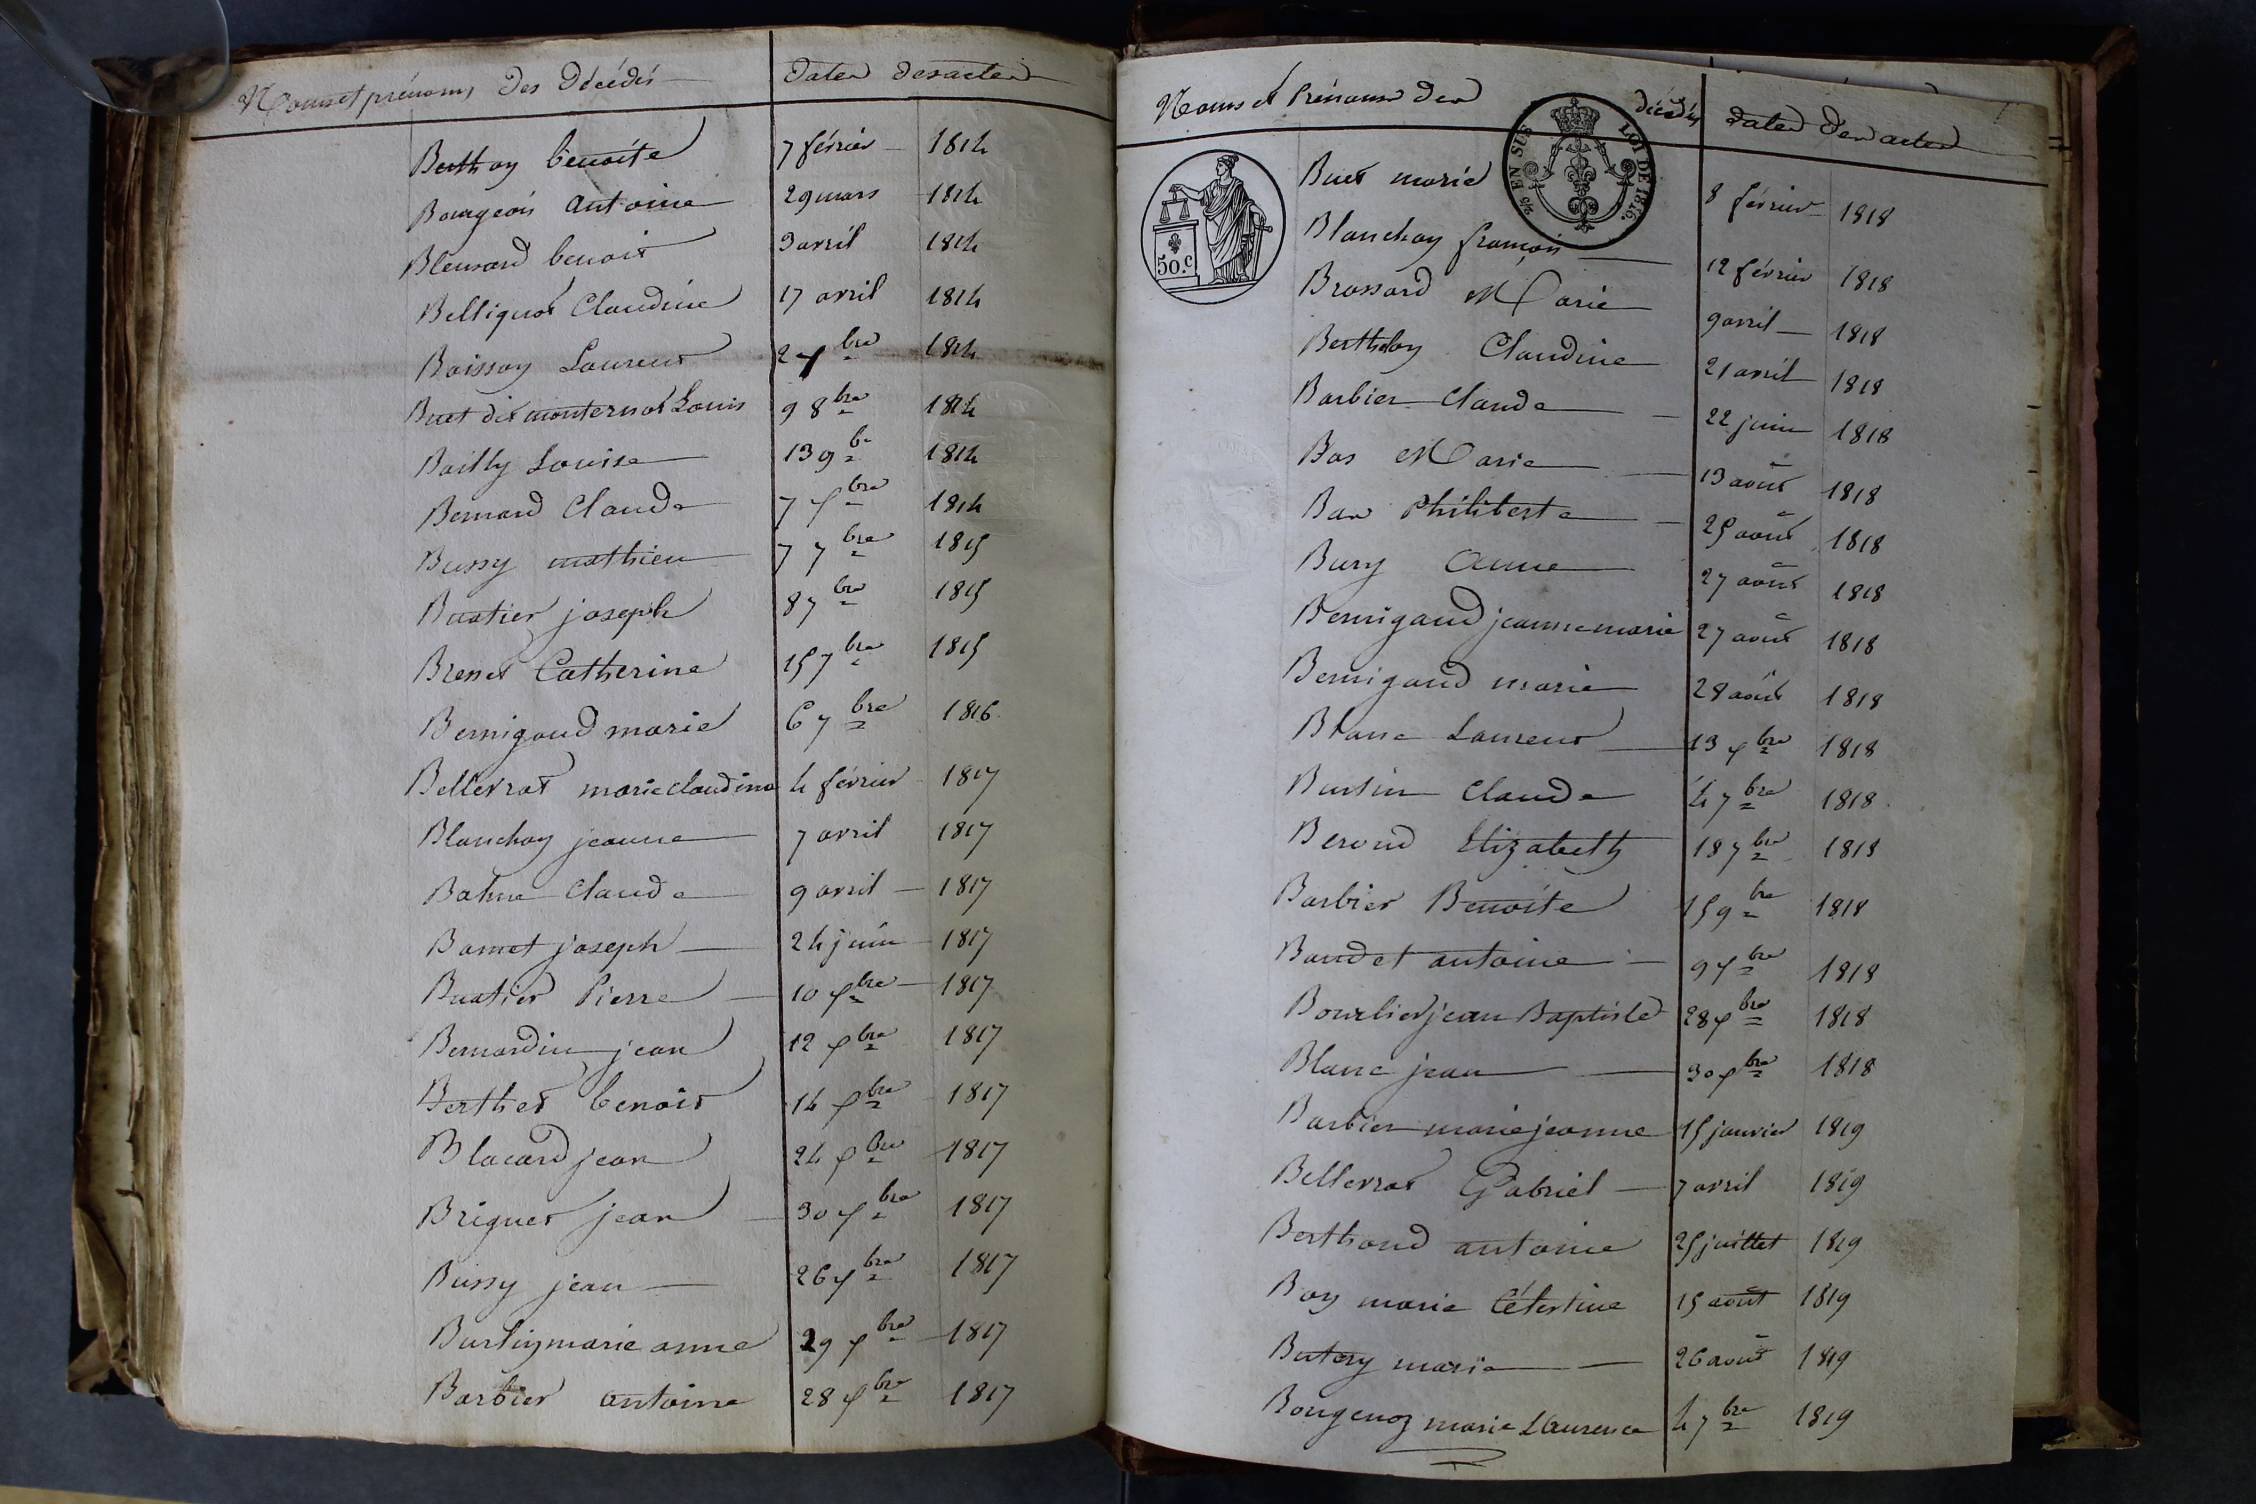 Noms et prénoms des décédés dates des actes
Berthoy benoite 7 février 1814
Bourgeois antoine 29 mars 1814
Blensard benoit 3 avril 1814
Belliguet Claudine 17 avril 1814
Boissoy Laurent 1814
Buet dit monternot Louis 9 8bre 1814
Bailly Louise 13 9bre 1814
Bernard Claude 7 Xbre 1814
Bussy mathieu 7 7bre 1815
Buatier joseph 8 7bre 1815
Brenet Catherine 15 7bre 1815
Bernigaud marie 6 7bre 1816
Belleverat marie claudine 4 février 1817
Blanchoy jeanne 7 avril 1817
Bahne Claude 9 avril 1817
Bamet joseph 24 juin 1817
Buatier Pierre 10 Xbre 1817
Bernardin jean 12 Xbre 1817
Berthet benoit 14 Xbre 1817
Blacard jean 24 Xbre 1817
Briguet jean 30 Xbre 1817
Bussy jean 26 Xbre 1817
marie anne 29 Xbre 1817
Barbier antoine 28 Xbre 1817
Noms et Prénoms des décédés dates des actes
EN SUS LOI DE 1816.
50.c
Buet marie 8 février 1818
Blanchoy françois 12 février 1818
Brossard Marie 9 avril 1818
Bertheloy Claudine 21 avril 1818
Barbier Claude 22 juin 1818
Bas Marie 13 août 1818
Bas Philiberte 25 août 1818
Bury Anne 27 août 1818
Bernigaud jeanne marie 27 août 1818
Bernigaud marie 28 août 1818
Blanc Laurent 13 Xbre 1818
Burtin Claude 4 7bre 1818
Beroud Elizabeth 18 7bre 1818
Barbier Benoite 15 9bre 1818
Baudet antoine 9 Xbre 1818
Bourlier jean Baptiste 28 Xbre 1818
Blanc jean 30 Xbre 1818
Barbier marie jeanne 15 janvier 1819
Belleverat Gabriel 7 avril 1819
Berthaud antoine 25 juillet 1819
Boy marie Célestine 15 août 1819
Butery marie 26 août 1819
Bougenoz marie Laurence 4 7bre 1819